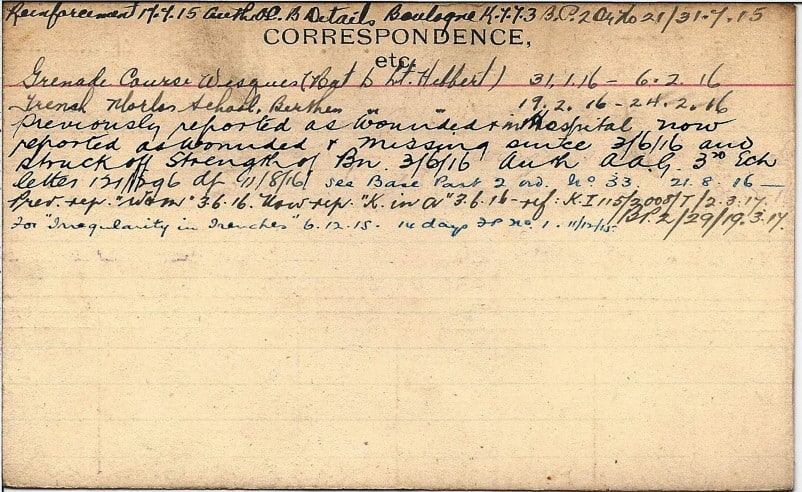 Reinforcement 17.7.15 Auth. O.C. B Details Boulogne K.7.7.3 B.P.2 Or. No 21/31.7.15
CORRESPONDENCE,
etc.
Grenade Course Wisques (Rgt to Lt. Hebbert) 31.1.16 - 6.2.16
Trench Mortar School, Berthen 19.2.16 - 24.2.16
Previously reported as "Wounded & in Hospital now
reported as Wounded & Missing since 3/6/16 and
struck off Strength of Bn 3/6/16 Auth A.A.G. 3rd Ech
letter df 11/8/16 See Base Part 2 ord. No 33 21.8.16 —
Prev. rep. "W & M" 3.6.16. Now rep. "K. in A" 3.6.16 - ref: K.I 115/2008/T/2.3.17.
B.P. 2/29/19.3.17.
For "Irregularity in Trenches" 6.12.15. 14 days F.P. No. 1. 11/12/15.